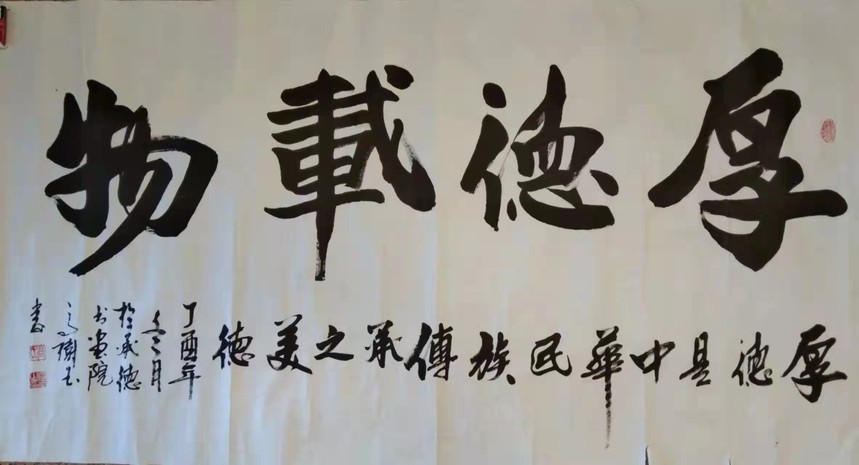 厚德載物
厚德是中華民族傳承之美德
丁酉年
冬月
於承德
书画院
玉
书